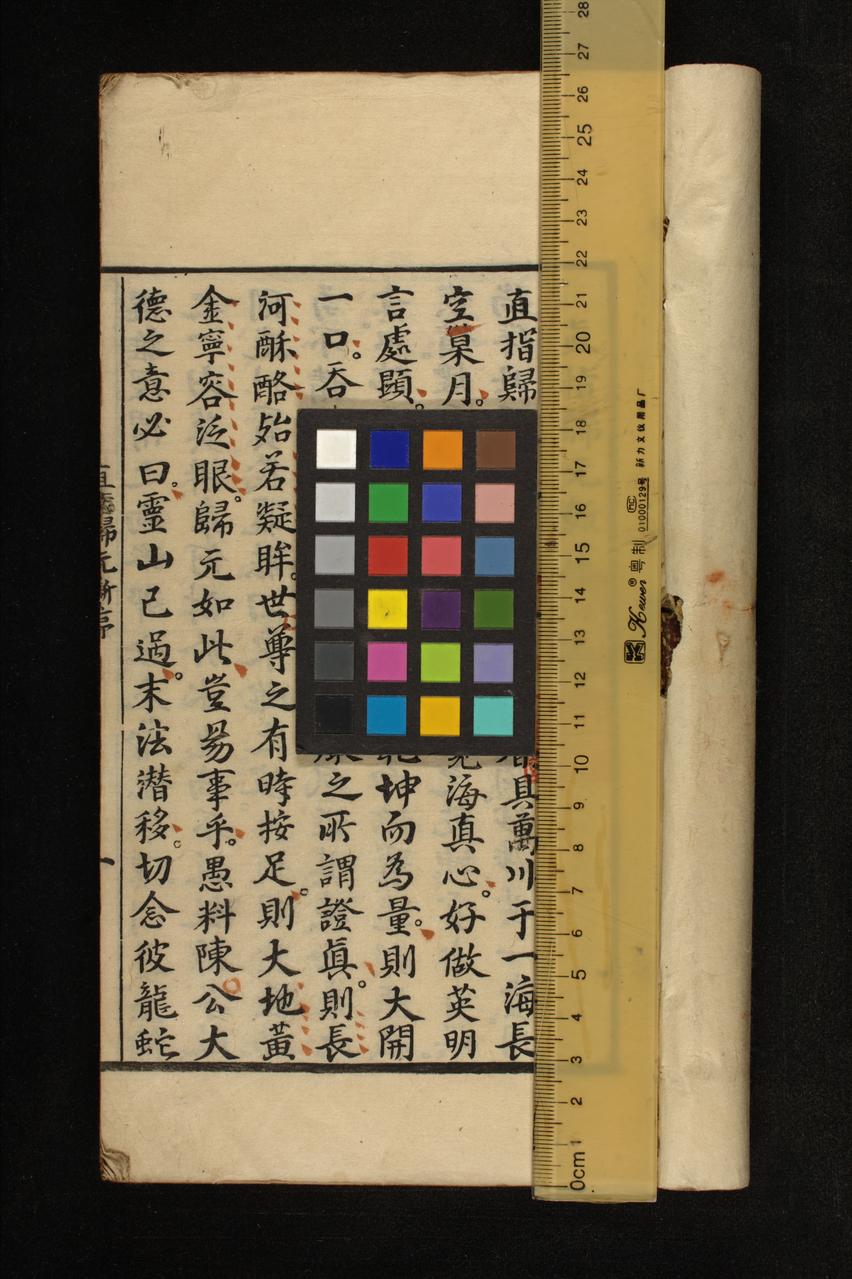 直指歸
具萬川于一海長
空杲月。
海真心。好做英明
言處顯。
坤而為量。則大開
一口。吞
之所謂證眞。則長
河酥酪。殆若凝眸。世尊之有時按足。則大地黃
金。寧容泛眼。歸元如此。豈易事乎。愚料陳公大
德之意必曰。靈山已過。末法潛移。切念彼龍蛇
直指歸元新序
一
0cm 1 2 3 4 5 6 7 8 9 10 11 12 13 14 15 16 17 18 19 20 21 22 23 24 25 26 27 28
Kewen® 粤制 01000129号 新力文仪用品厂